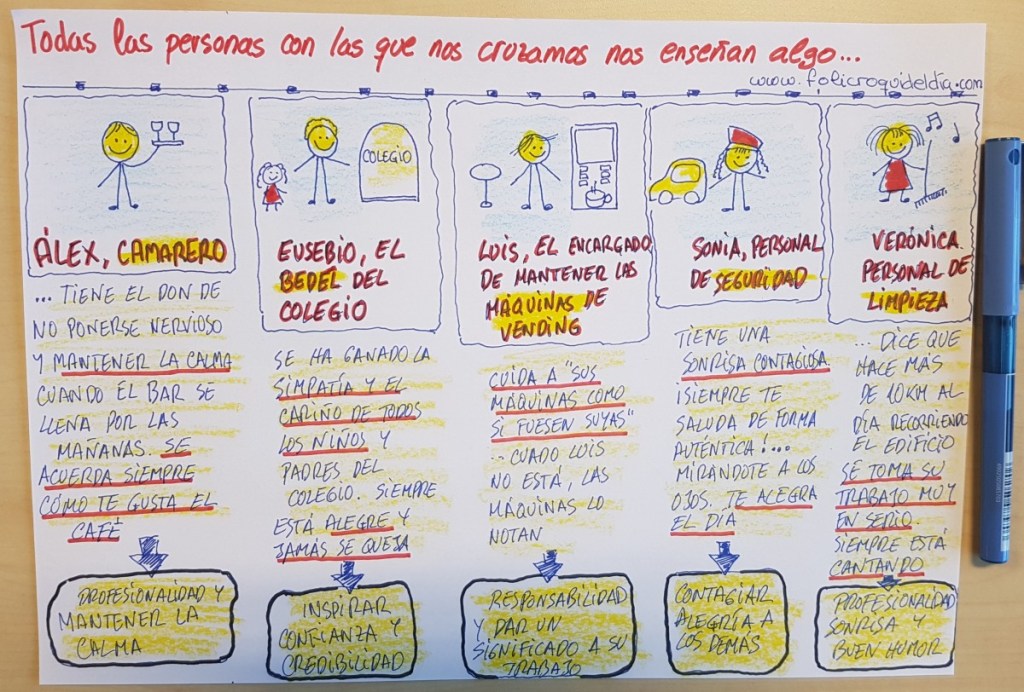 Todas las personas con las que nos cruzamos nos enseñan algo...
www.folicroquideldia.com
ÁLEX, CAMARERO
... TIENE EL DON DE
NO PONERSE NERVIOSO
Y MANTENER LA CALMA
CUANDO EL BAR SE
LLENA POR LAS
MAÑANAS. SE
ACUERDA SIEMPRE
CÓMO TE GUSTA EL
CAFÉ
PROFESIONALIDAD Y
MANTENER LA
CALMA
COLEGIO
EUSEBIO, EL
BEDEL DEL
COLEGIO
SE HA GANADO LA
SIMPATÍA Y EL
CARIÑO DE TODOS
LOS NIÑOS Y
PADRES DEL
COLEGIO. SIEMPRE
ESTÁ ALEGRE Y
JAMÁS SE QUEJA
INSPIRAR
CONFIANZA Y
CREDIBILIDAD
LUIS, EL ENCARGADO
DE MANTENER LAS
MÁQUINAS DE
VENDING
CUIDA A "SUS
MÁQUINAS COMO
SI FUESEN SUYAS"
... CUADO LUIS
NO ESTÁ, LAS
MÁQUINAS LO
NOTAN
RESPONSABILIDAD
Y DAR UN
SIGNIFICADO A SU
TRABAJO
SONIA, PERSONAL
DE SEGURIDAD
TIENE UNA
SONRISA CONTAGIOSA
¡SIEMPRE TE
SALUDA DE FORMA
AUTÉNTICA!....
MIRÁNDOTE A LOS
OJOS. TE ALEGRA
EL DÍA
CONTAGIAR
ALEGRÍA A
LOS DEMÁS
VERÓNICA.
PERSONAL DE
LIMPIEZA
... DICE QUE
HACE MÁS
DE 10KM AL
DÍA RECORRIENDO
EL EDIFICIO
SE TOMA SU
TRABAJO MUY
EN SERIO.
SIEMPRE ESTÁ
CANTANDO
PROFESIONALIDAD
SONRISA Y
BUEN HUMOR